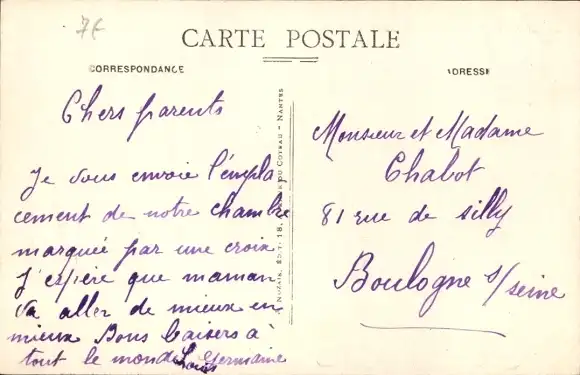 7€
CARTE POSTALE
CORRESPONDANCE
Chers parents
Je vous envoie l'empla
cement de notre chambre
marquée par une croix
J'espère que maman
va aller de mieux en
mieux Bons baisers à
tout le monde Germaine
Louis
DU COTEAU - NANTES
ADRESSE
Monsieur et Madame
Chabot
81 rue de silly
Boulogne s/seine